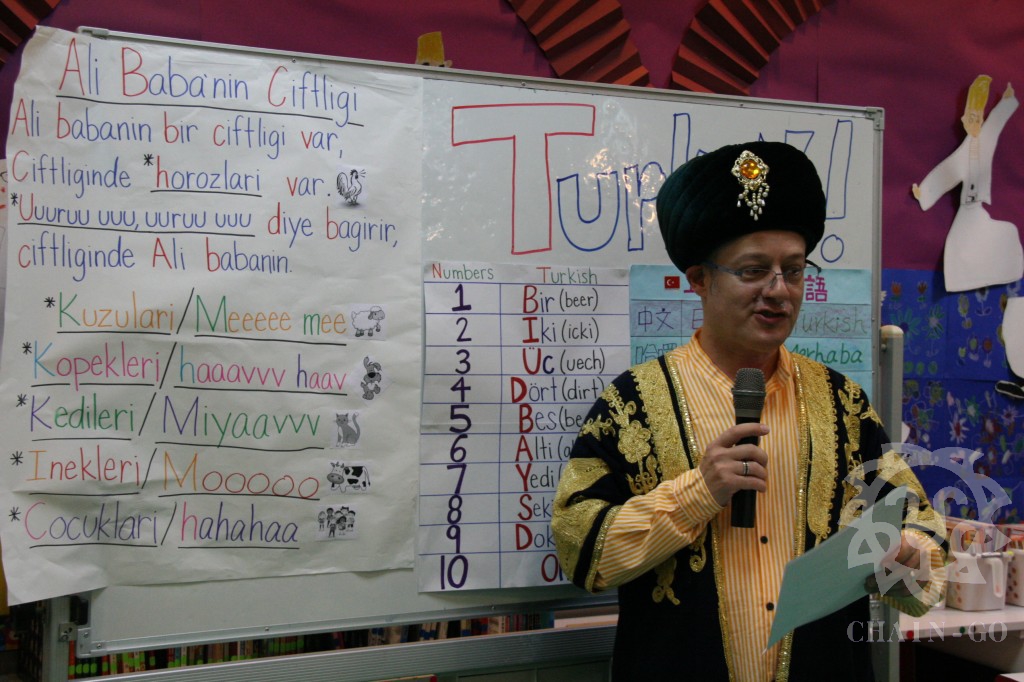 Ali Baba'nin Ciftligi
Ali babanin bir ciftligi var,
Ciftliginde *horozlari var.
*Uuuruu uuu, uuruu uuu diye bagirir,
ciftliginde Ali babanin.
*Kuzulari/Meeeee mee
*Kopekleri/haaavvv haav
*Kedileri/Miyaavvv
*Inekleri/Mooooo
*Cocuklari/hahahaa
Numbers Turkish
1 Bir (beer)
2 Iki (icki)
3 Üc (uech)
4 Dört (dirt)
5 Bes
6 Alti
7 Yedi
8
9
10
語
中文
Turkish
Merhaba
CHAIN-GO